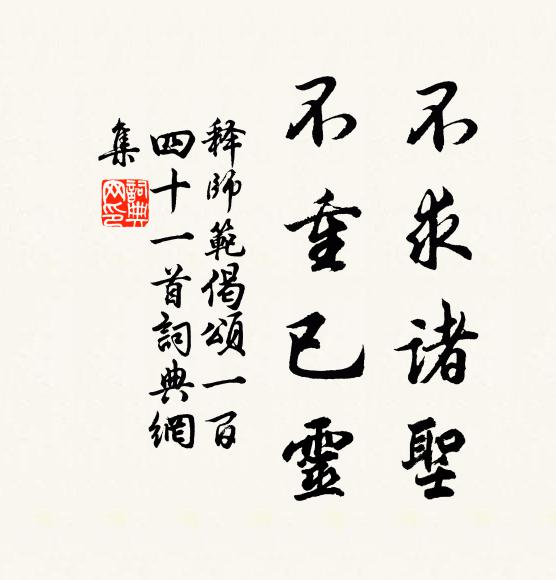 不求诸聖
不重已靈
释師範偈頌一百
四十一首詞典網
集
詞典
网印